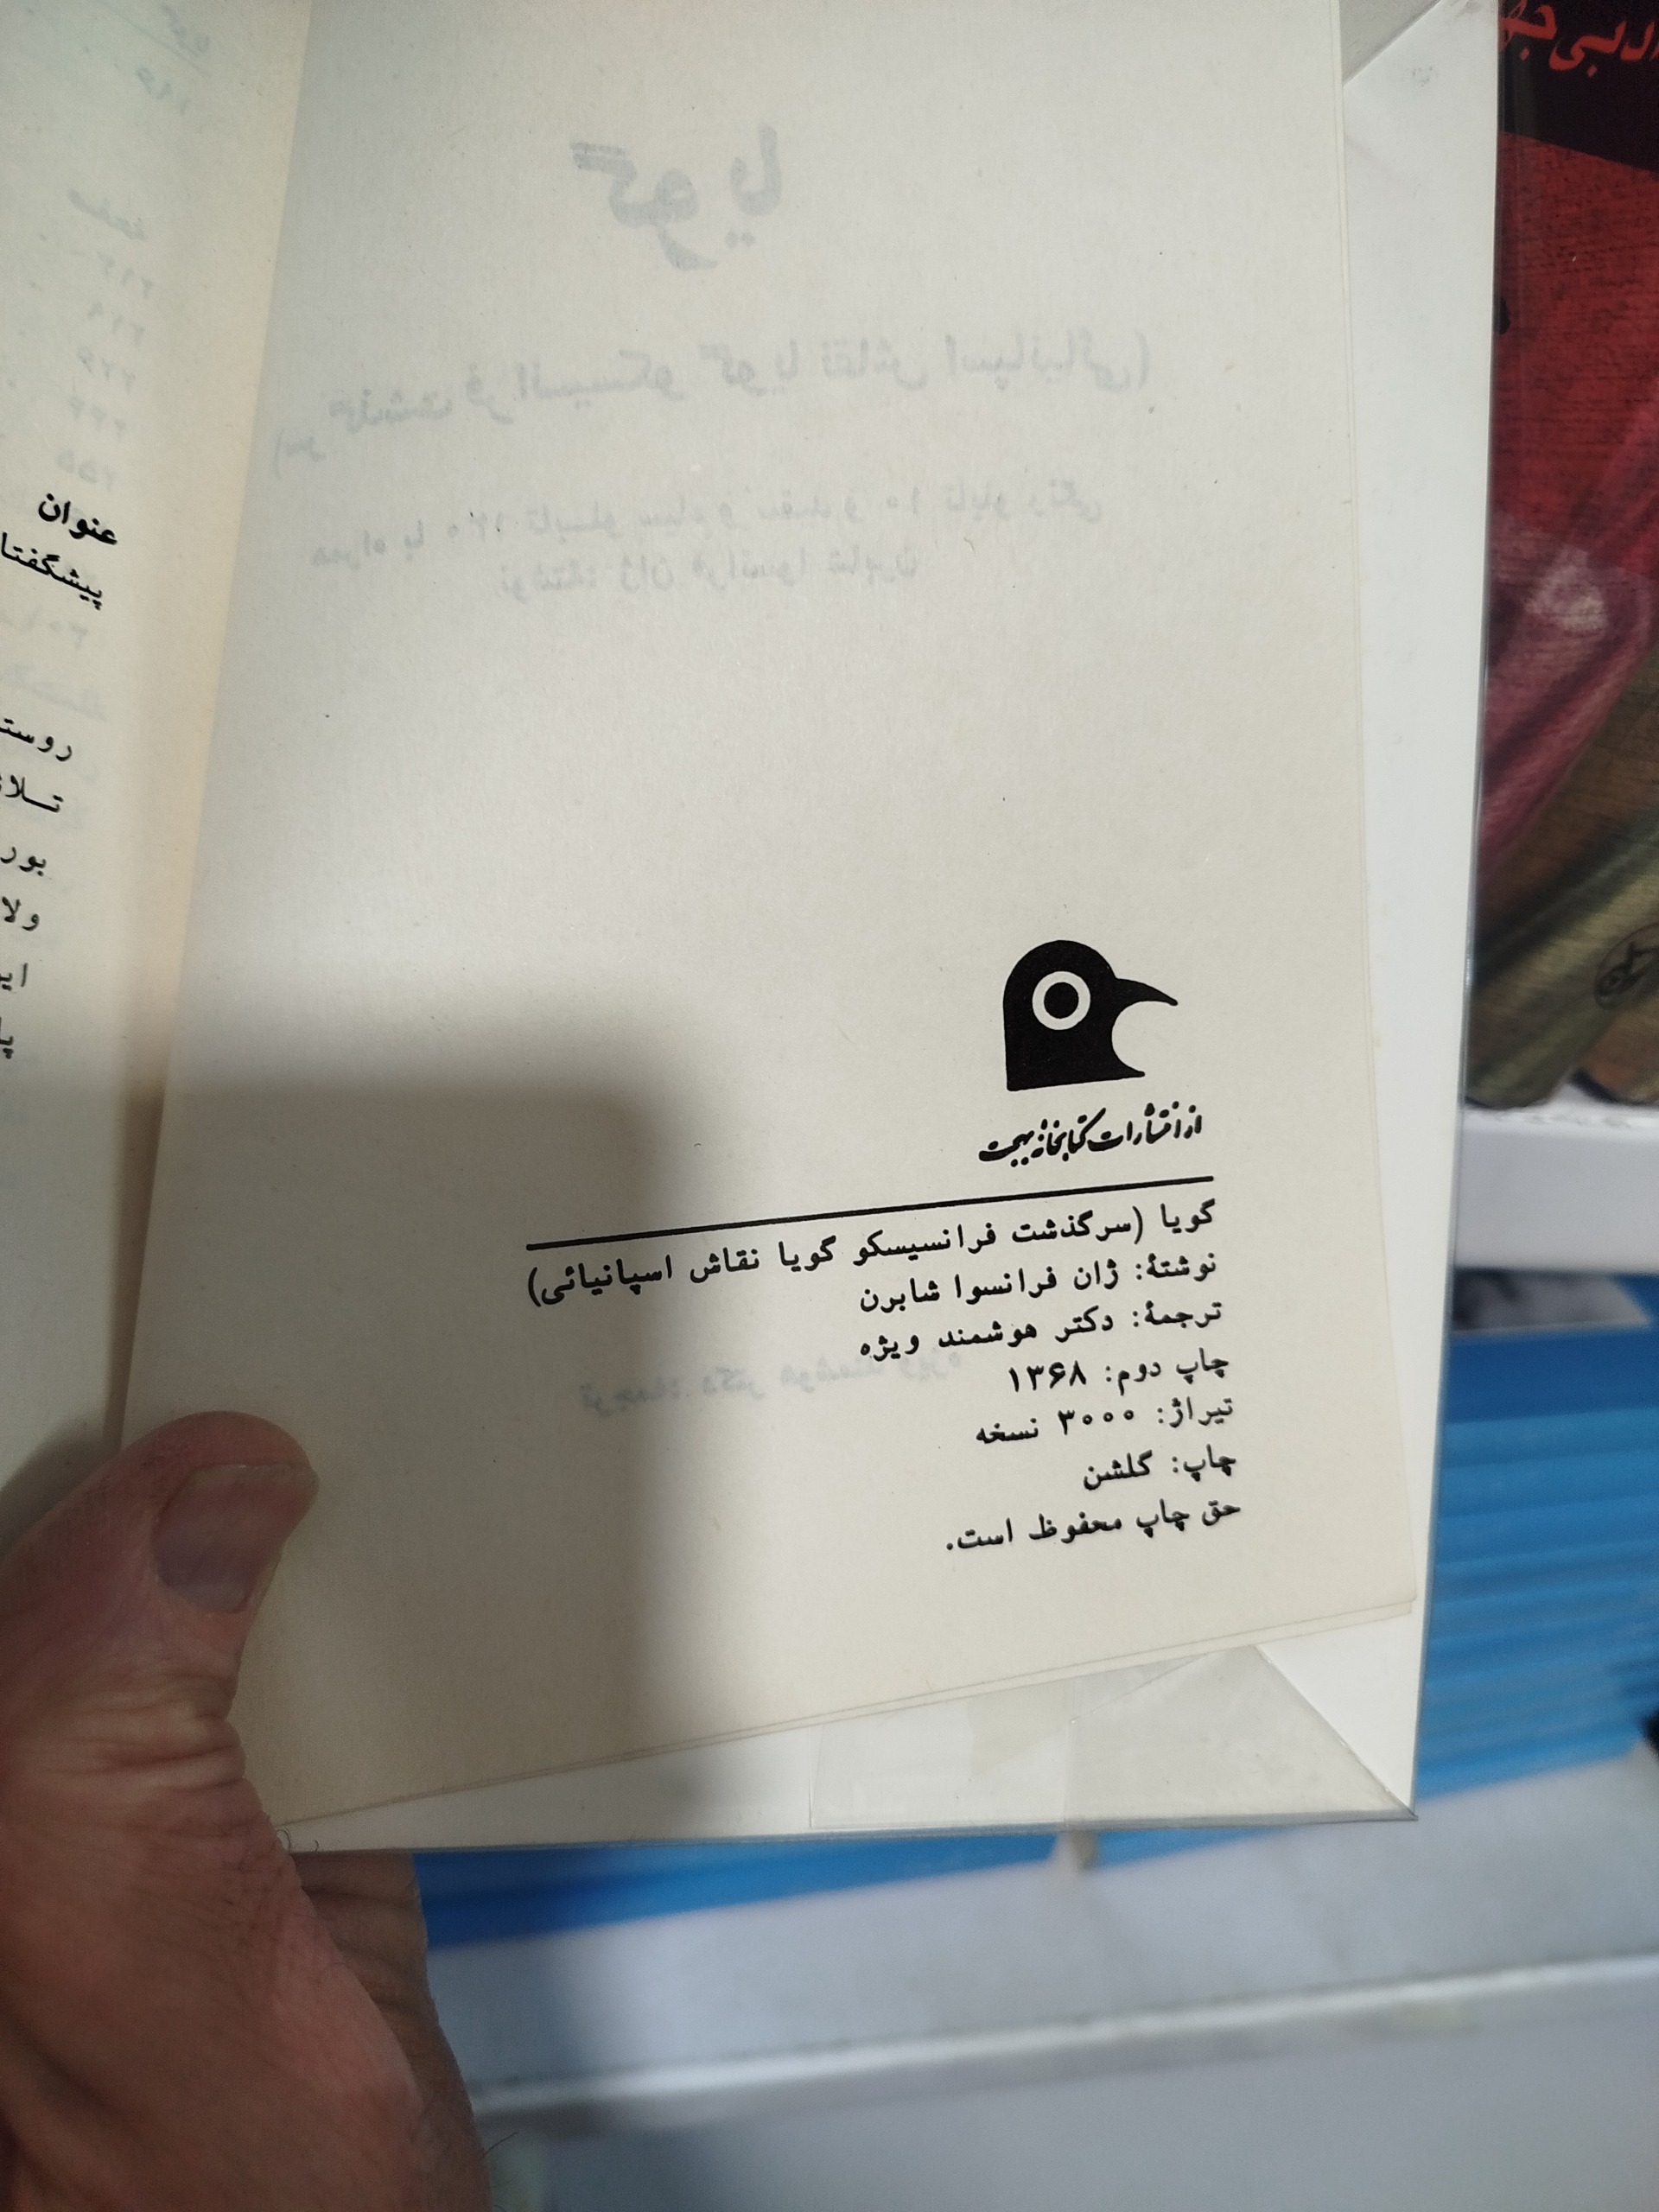 از انتشارات کتابخانهٔ بهجت
گویا (سرگذشت فرانسیسکو گویا نقاش اسپانیائی)
نوشتهٔ: ژان فرانسوا شابرن
ترجمهٔ: دکتر هوشمند ویژه
چاپ دوم: ۱۳۶۸
تیراژ: ۳۰۰۰ نسخه
چاپ: گلشن
حق چاپ محفوظ است.
عنوان
پیشگفتا
روست
تسلا
بور
ولا
ایـ
پا